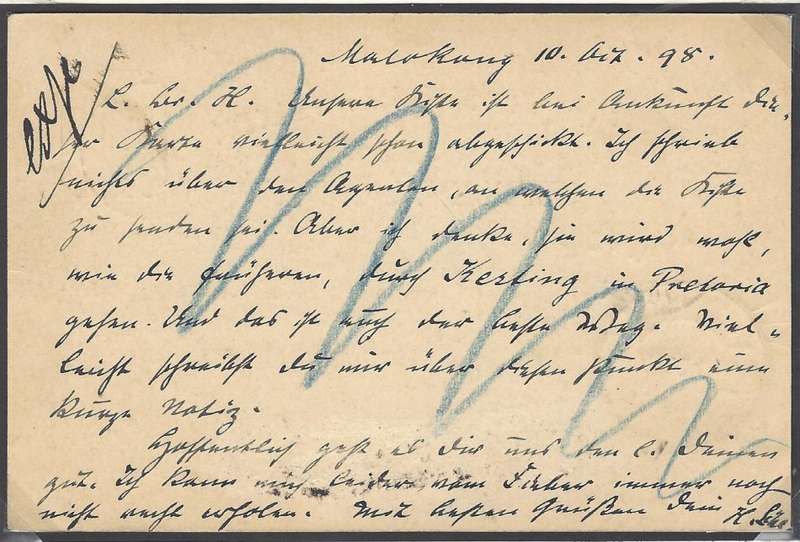 Malokong 10. Oct. 98.
exp
L. Br. H. Unsere Kiste ist bei Ankunft die-
ser Karte vielleicht schon abgeschickt. Ich schrieb
nichts über den Agenten, an welchen die Kiste
zu senden sei. Aber ich denke, sie wird wohl,
wie die früheren, durch Kesting in Pretoria
gehen. Und das ist auch der beste Weg. Viel-
leicht schreibst du mir über diesen Punkt eine
kurze Notiz.
Hoffentlich geht es Dir und den l. Deinen
gut. Ich kann mich leider vom Fieber immer noch
nicht recht erholen. Mit besten Grüßen Dein H.